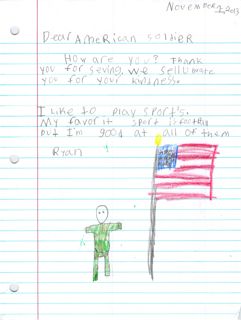 November 1, 2013
Dear American soldier
How are you? Thank
you for seving, we sellUbrate
you for your kindness.
I like to play sport's.
My favorit sport is footbll
but I'm good at all of them
Ryan